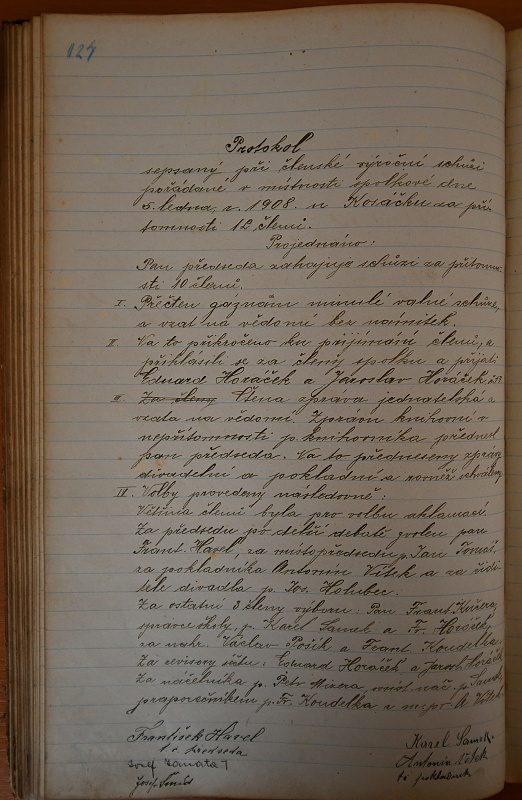 127
Protokol
sepsaný při členské výroční schůzi
pořádané v místnosti spolkové dne
5. ledna, r. 1908. u Kosáčku za pří-
tomnosti 12 členů.
Projednáno:
Pan předseda zahajuje schůzi za přítomno-
sti 10 členů.
I. Přečten záznam minulé valné schůze,
a vzat na vědomí bez námitek.
II. Na to přikročeno ku přijímání členů, a
přihlásili se za členy spolku a přijati
Eduard Horáček a Jaroslav Horáček
III. Za členy Čtena zpráva jednatelská a
vzata na vědomí. Zprávu knihovní v
nepřítomnosti p. knihovníka přednesl
pan předseda. Na to předneseny zprávy
divadelní a pokladní a rovněž schváleny
IV. Volby provedeny následovně:
Většina členů byla pro volbu aklamací.
Za předsedu po delší debatě zvolen pan
Frant. Havel, za místopředsedu p. Jan Tomáš,
za pokladníka Antonín Vítek a za ředi-
tele divadla p. Jos. Holubec.
Za ostatní 3 členy výboru: Pan Frant. Kučera,
správce školy, p. Karel Samek a Fr. Horáček,
za náhr. Václav Pošík a Frant. Koudelka
Za revisory účtů: Eduard Horáček a Jarosl. Horáček
Za náčelníka p. Petr Mizera, místonáč. p. Samek
praporečníkem p. Fr. Koudelka v. A. Vítek
František Havel
t. č. předseda
Josef
Josef
Karel Samek
Antonín Vítek
t. č. pokladník